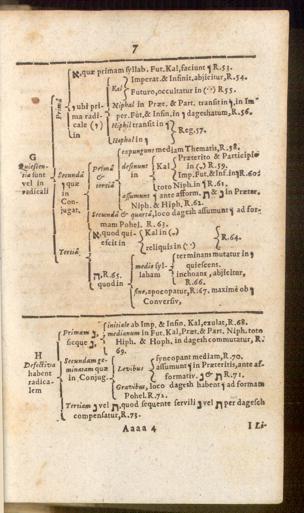 7
א, quæ primam syllab. Fut. Kal, faciunt ו R.53.
Imperat. & Infinit, abjicitur, R.54.
Kal
Futuro, occultatur in ( ) R55.
Primâ
י, ubi pri-
ma radi-
cale (ו)
in
Niphal in Præt. & Part. transit in ו, in Im
per. Fut, & Infin, in ו dageshatum, R.56.
Hiphil transit in
Hophal in
Reg. 57.
G
Quiescen-
tia sunt
vel in
radicali
expungunt mediam Thematis, R.58.
Secundâ
ו quæ
in
Conjugat.
Primâ
&
tertiâ
desinunt
in
Kal
Præterito & Participio
in ( ) R.59.
Imp. Fut. & Inf. in R.60;
toto Niph. in ו R.61.
assumunt ante afform. & ו in Præter.
Niph. & Hiph, R.62.
Secundâ & quartâ, loco dagesh assumunt ו ad for-
mam Pohel. R.63.
Tertiâ
א, quod qui-
escit in
Kal in ( )
reliquis in ( )
R.64.
ה, R.65.
quod in
medio syl-
labam
terminans mutatur in
quiescens.
inchoans, abjicitur,
R.66.
fine, apocopatur, R.67. maxime ob ו
Conversiv,
H
Defectiva
habent
radica-
lem
Primam נ,
sicque
initiale ab Imp, & Infin, Kal, exulat, R.68.
medianum in Fut. Kal, Præt. & Part. Niph. toto
Hiph. & Hoph, in dagesh commutatur, R.
69.
Secundam ge-
minatam quæ
in Conjug.
Levibus
syncopant mediam, R.70.
assumunt ו in Præteritis, ante af-
formativ. R.71.
Gravibus, loco dagesh habent ו ad formam
Pohel. R.72.
Tertiam נ vel ת, quod sequente servili נ vel ת per dagesch
compensatur, R.73.
Aaaa 4
I Li-